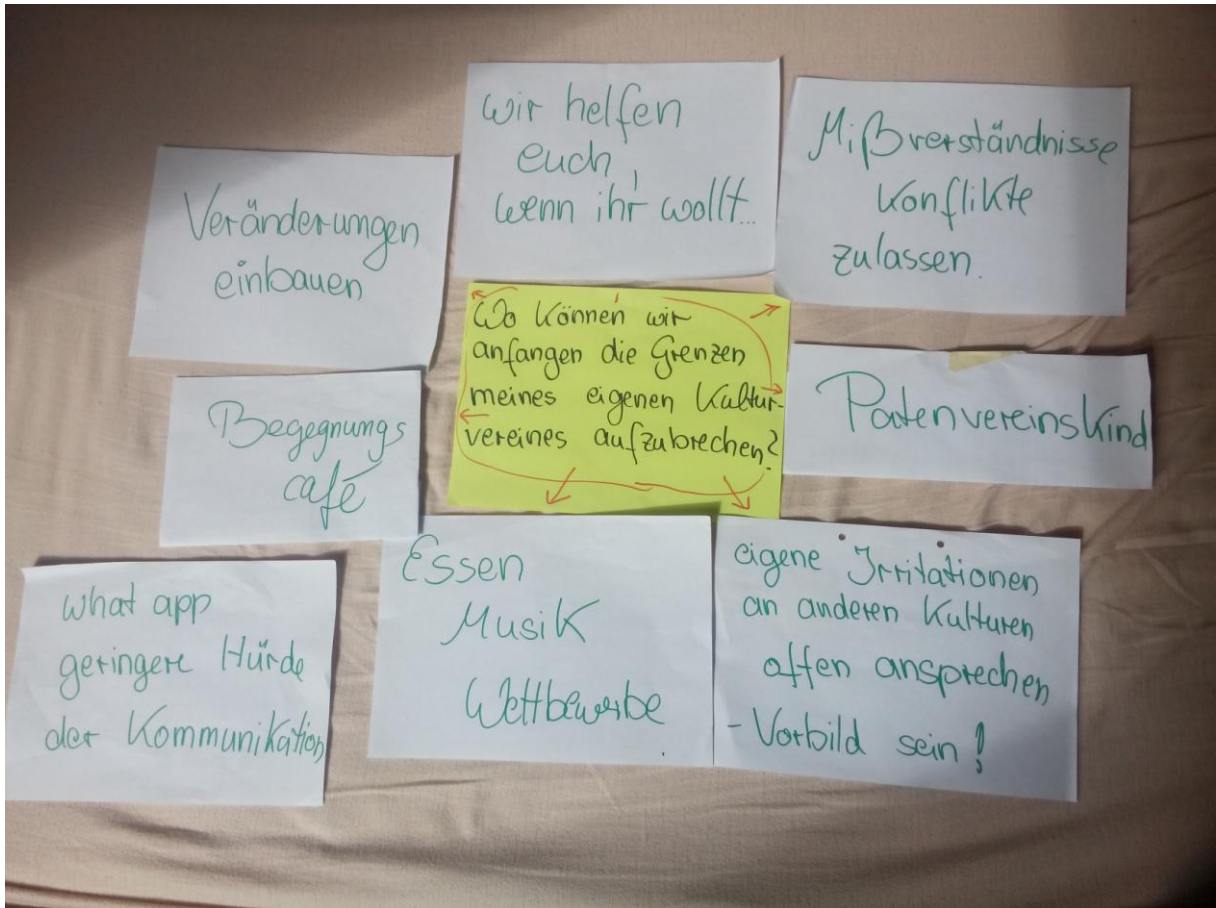 wir helfen
euch,
wenn ihr wollt...
Mißverständnisse
Konflikte
zulassen.
Veränderungen
einbauen
Wo können wir
anfangen die Grenzen
meines eigenen Kultur-
vereines aufzubrechen?
Patenvereinskind
Begegnungs
café
what app
geringere Hürde
der Kommunikation
Essen
Musik
Wettbewerbe
eigene Irritationen
an anderen Kulturen
offen ansprechen
- Vorbild sein!